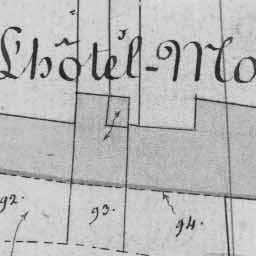 L'hôtel-Mo
92.
93.
94.